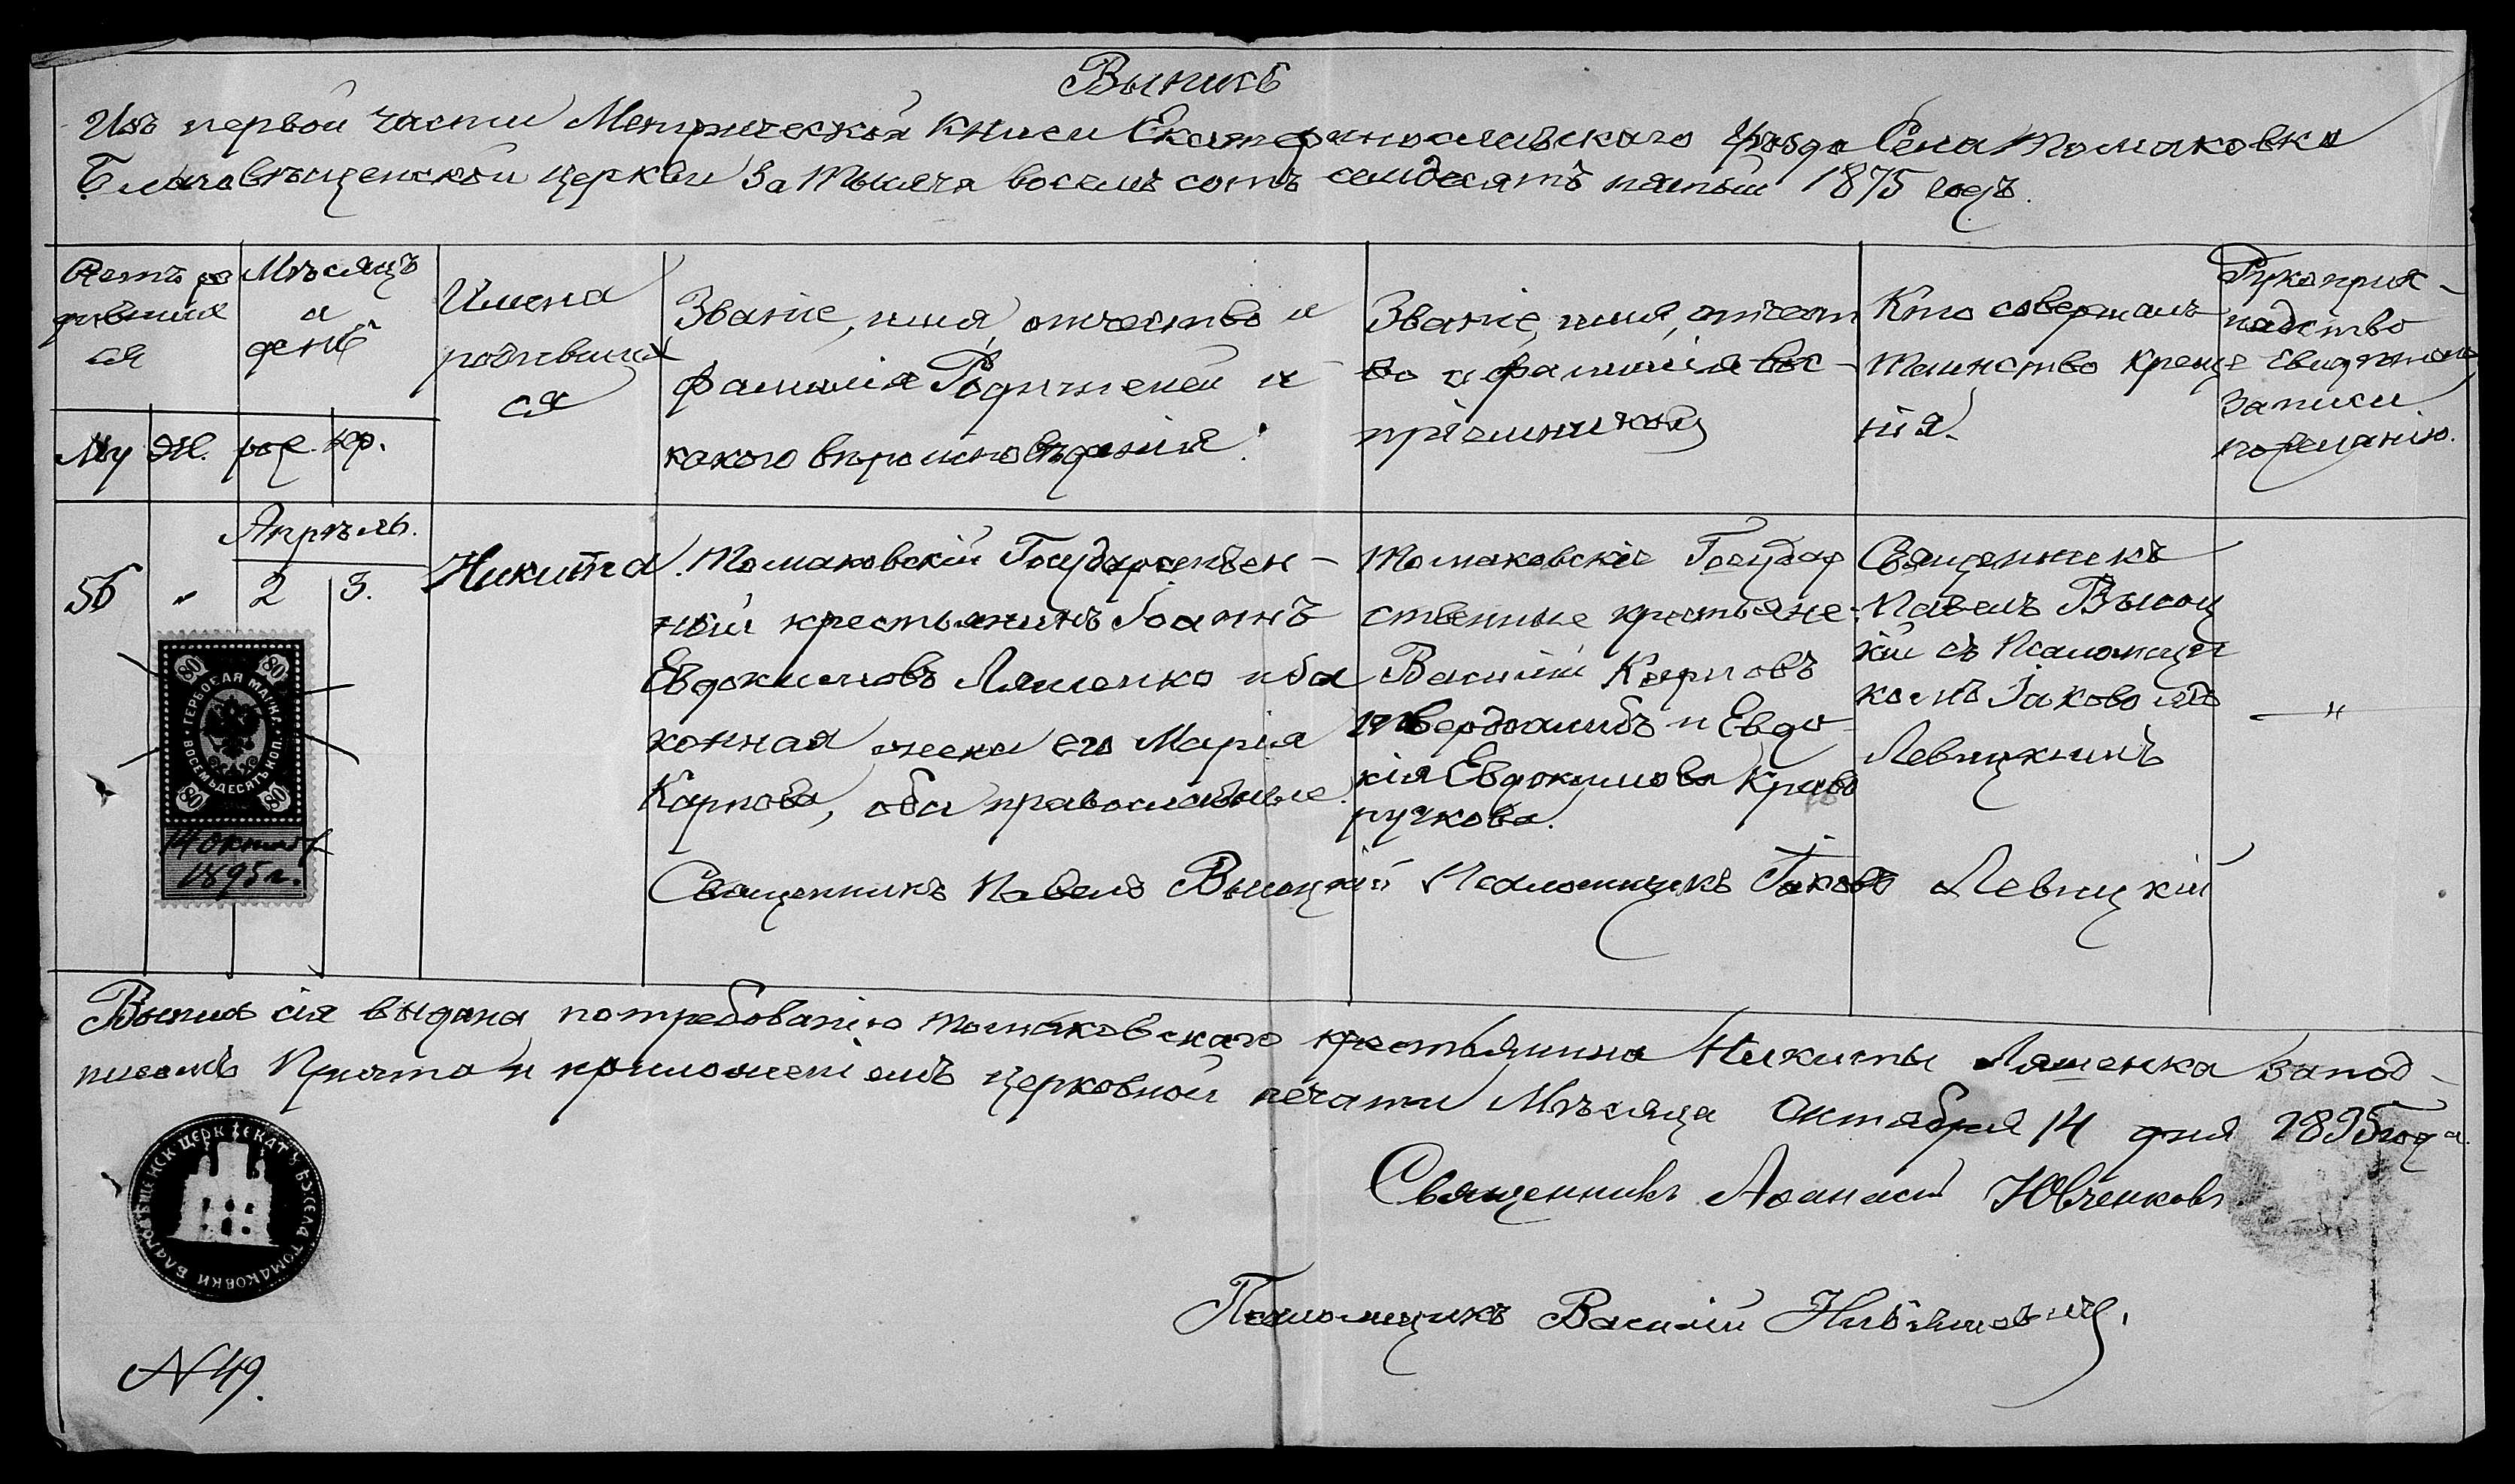 Выписъ
Изъ первой части Метрической книги Екатеринославскаго уѣзда Села Томаковка
Благовѣщенской церкви За Тысяча восемь сотъ семдесятъ пятый 1875 годъ.
Счетъ ро
дивших
ся
Мѣсяцъ
и
день
Му Ж. рож. кр.
Имена
родивших
ся
Званіе, имя, отчество и
фамилія Родителей и
какого вѣроисповѣданія.
Званіе, имя, отчест
во и фамилія вос-
пріемниковъ
Кто совершалъ
Таинство Креще
нія.
Рукоприк-
ладство
свидѣтелей
записи
по желанію.
56 " Апрѣль.
2 3.
Никита.
Томаковскій Государствен-
ный крестьянинъ Іоаннъ
Евдокимовъ Ляшенко и за
конная жена его Марія
Карпова, оба православные.
Томаковскіе Государ
ственные крестьяне:
Василій Карповъ
и Евдо-
кія Евдокимова Криво
ручкова.
Священникъ
Павелъ Высоц
кій съ Псаломщи
комъ Іаковомъ
Левицкимъ
— " —
Священникъ Павелъ Высоцкій Псаломщикъ Іаковъ Левицкій
80 80
ГЕРБОВАЯ МАРКА
ВОСЕМЬДЕСЯТЪ КОП.
80 80
14 октяб.
1895 г.
Выпись сія выдана по требованію Томаковскаго крестьянина Никиты Ляшенка за под-
писомъ Причта и приложеніемъ церковной печати Мѣсяца Октября 14 дня 1895 года.
БЛАГОВѢЩЕНСК ЦЕРК ЕКАТ УѢ СЕЛА ТОМАКОВКИ
Священникъ Аѳанасій Ювченковъ
Псаломщикъ Василій
N 49.